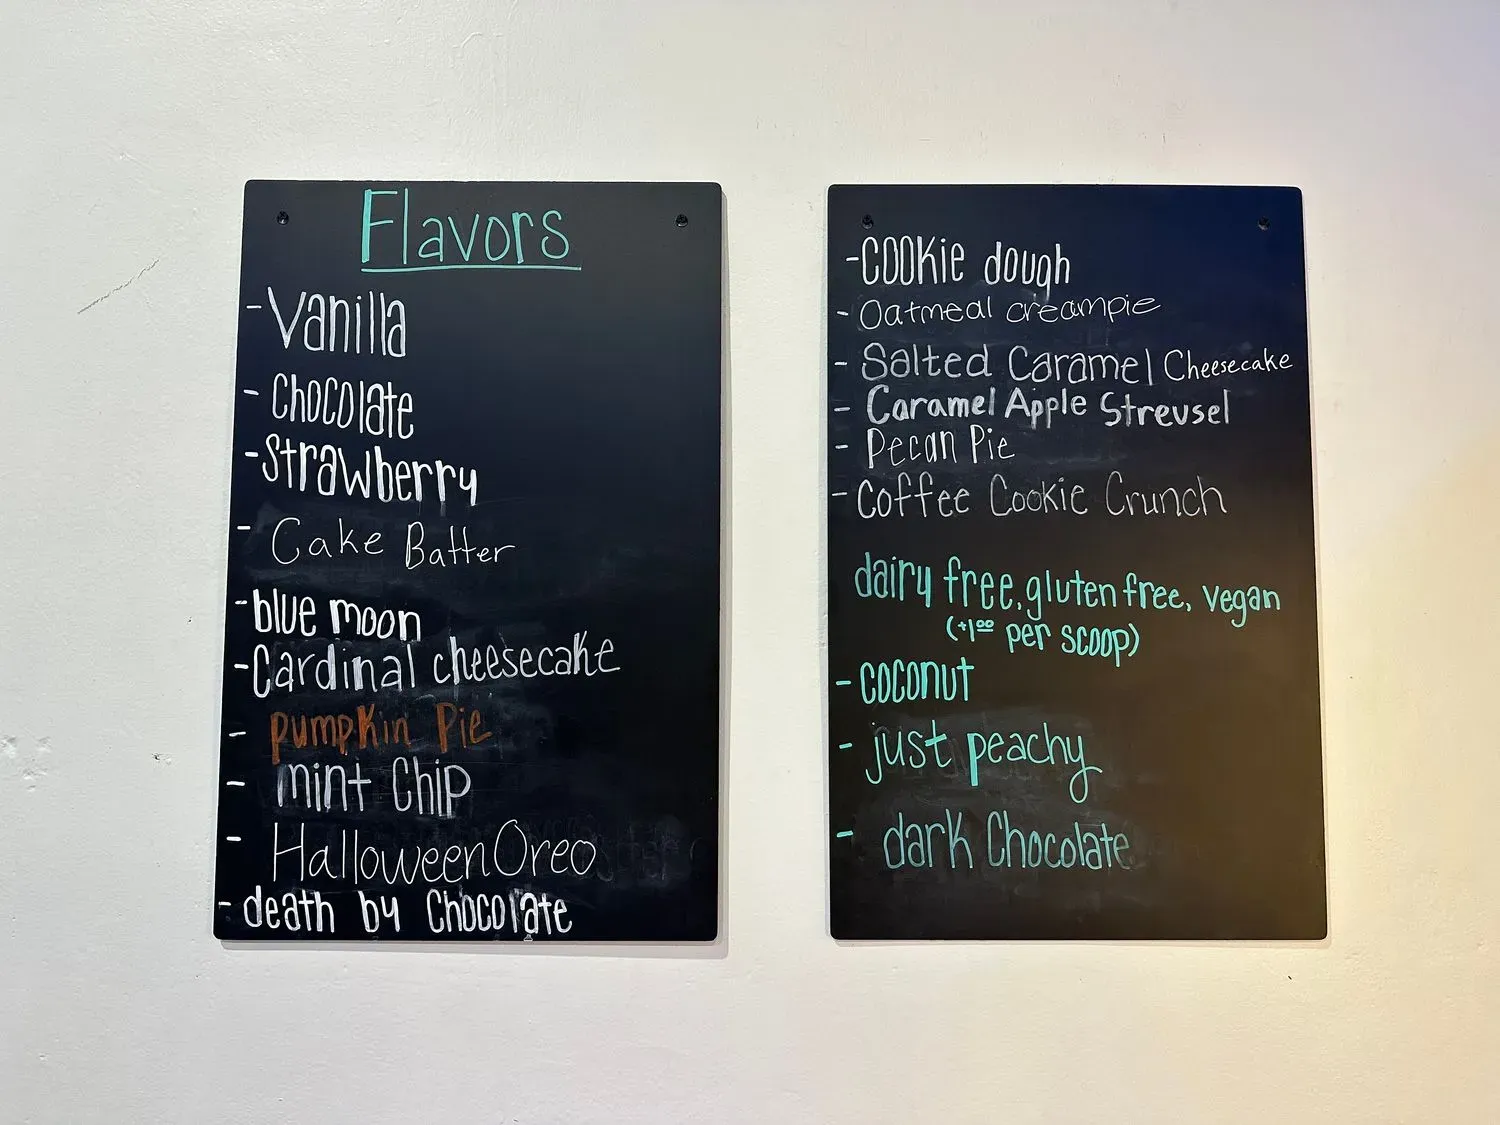 Flavors
- Vanilla
- Chocolate
- Strawberry
- Cake Batter
- blue moon
- Cardinal cheesecake
- pumpkin Pie
- mint Chip
- Halloween Oreo
- death by Chocolate
- Cookie dough
- Oatmeal creampie
- Salted Caramel Cheesecake
- Caramel Apple Streusel
- Pecan Pie
- Coffee Cookie Crunch
dairy free, gluten free, vegan
(+1⁰⁰ per scoop)
- coconut
- just peachy
- dark Chocolate